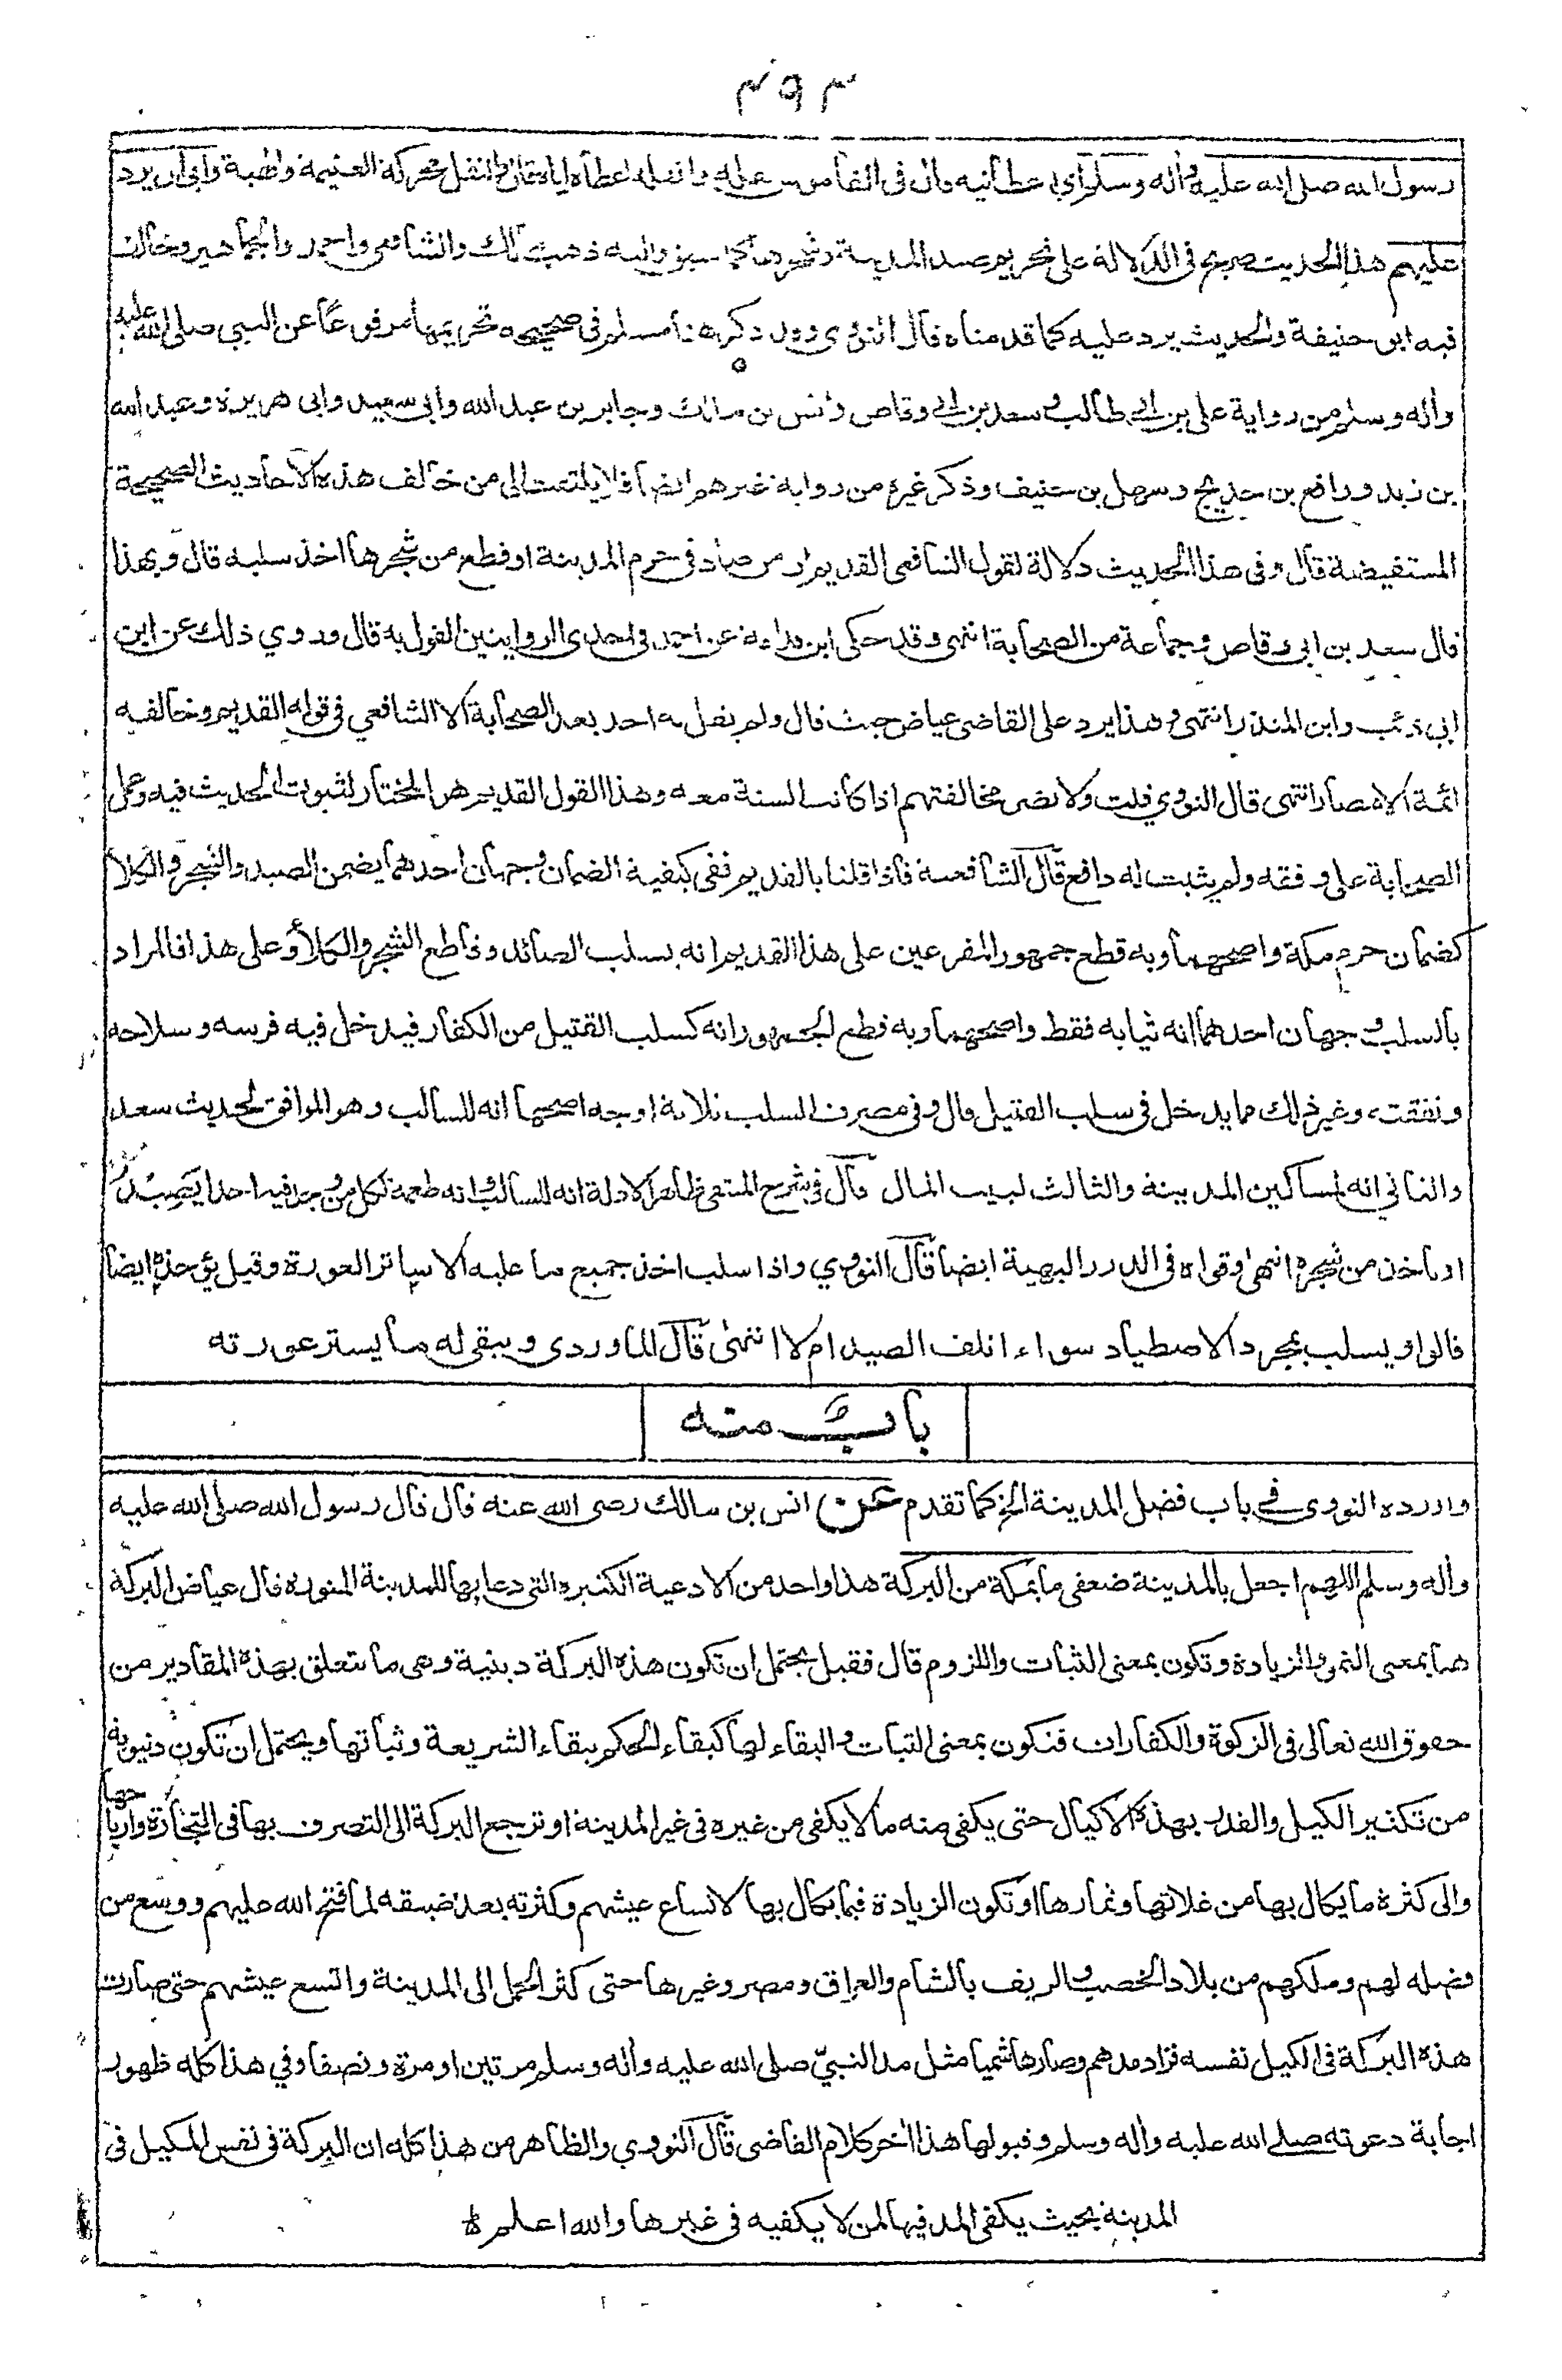 ٤٩٣
رسول الله صلى الله عليه وأله وسلم أي اعطانيه قال فى القاموس نفله وانفله اعطاه اياه وقال والنفل محركة الغنيمة والهبة وابى ان يرد
عليهم هذا الحديث صريح فى الدلالة على تحريم صيد المدينة وشجرها كما سبق واليه ذهب مالك والشافعى واحمد والجماهير وخالف
فيه ابو حنيفة والحديث يرد عليه كما قدمناه قال النووى وقد ذكر هنا مسلم فى صحيحه تحريمها مرفوعًا عن النبي صلى الله عليه
وأله وسلم من رواية على بن ابى طالب وسعد بن ابى وقاص وانس بن مالك وجابر بن عبد الله وابى سعيد وابى هريرة وعبد الله
بن زيد ورافع بن خديج وسهل بن حنيف وذكر غيره من رواية غيرهم ايضا فلا يلتفت الى من خالف هذه الاحاديث الصحيحة
المستفيضة قال وفى هذا الحديث دلالة لقول الشافعى القديم ان من صاد فى حرم المدينة او قطع من شجرها اخذ سلبه قال وبهذا
قال سعد بن ابى وقاص وجماعة من الصحابة انتهى وقد حكى ابن قدامة عن احمد فى احدى الروايتين القول به قال وروي ذلك عن ابن
ابي ذئب وابن المنذر انتهى وهذا يرد على القاضى عياض حيث قال ولم يقل به احد بعد الصحابة الا الشافعي فى قوله القديم وخالفه
ائمة الامصار انتهى قال النووي قلت ولا تضر مخالفتهم اذا كانت السنة معه وهذا القول القديم هو المختار لثبوت الحديث فيه وعمل
الصحابة على وفقه ولم يثبت له دافع قال الشافعية فاذا قلنا بالقديم ففى كيفية الضمان وجهان احدهما يضمن الصيد والشجر والكلأ
كضمان حرم مكة واصحهما وبه قطع جمهور المفرعين على هذا القديم انه يسلب الصائد وقاطع الشجر والكلأ وعلى هذا فالمراد
بالسلب وجهان احدهما انه ثيابه فقط واصحهما وبه قطع الجمهور انه كسلب القتيل من الكفار فيدخل فيه فرسه وسلاحه
ونفقته وغير ذلك مما يدخل فى سلب القتيل قال وفى مصرف السلب ثلاثة اوجه اصحها انه للسالب وهو الموافق لحديث سعد
والثاني انه لمساكين المدينة والثالث لبيت المال قال فى شرح المنتقى ظاهر الادلة انه للسالب وانه طعمة لكل من وجد فيه احدا يصيد
او ياخذ من شجره انتهى وقواه فى الدرر البهية ايضا قال النووي واذا سلب اخذ جميع ما عليه الا ساتر العورة وقيل يؤخذ ايضا
قالوا ويسلب بمجرد الاصطياد سواء اتلف الصيد ام لا انتهى قال الماوردى ويبقى له ما يستر عورته
باب منه
واورده النووى فى باب فضل المدينة الخ كما تقدم عن انس بن مالك رضى الله عنه قال قال رسول الله صلى الله عليه
وأله وسلم اللهم اجعل بالمدينة ضعفى ما بمكة من البركة هذا واحد من الادعية الكثيرة التى دعا بها للمدينة المنورة قال عياض البركة
هنا بمعنى النمو والزيادة وتكون بمعنى الثبات واللزوم قال فقيل يحتمل ان تكون هذه البركة دينية وهى ما تتعلق بهذه المقادير من
حقوق الله تعالى فى الزكوة والكفارات فتكون بمعنى الثبات والبقاء لها كبقاء الحكم ببقاء الشريعة وثباتها ويحتمل ان تكون دنيوية
من تكثير الكيل والقدر بهذه الاكيال حتى يكفى منه ما لا يكفى من غيره فى غير المدينة او ترجع البركة الى التصرف بها فى التجارة وارباحها
والى كثرة ما يكال بها من غلاتها وثمارها او تكون الزيادة فيما يكال بها لاتساع عيشهم وكثرته بعد ضيقه لما فتح الله عليهم ووسع من
فضله لهم وملكهم من بلاد الخصب والريف بالشام والعراق ومصر وغيرها حتى كثر الحمل الى المدينة واتسع عيشهم حتى صارت
هذه البركة فى الكيل نفسه فزاد مدهم وصار هاشميا مثل مد النبيّ صلى الله عليه وأله وسلم مرتين او مرة ونصفا وفي هذا كله ظهور
اجابة دعوته صلى الله عليه وأله وسلم وقبولها هذا أخر كلام القاضى قال النووي والظاهر من هذا كله ان البركة فى نفس المكيل فى
المدينة بحيث يكفى المد فيها لمن لا يكفيه فى غيرها والله اعلم